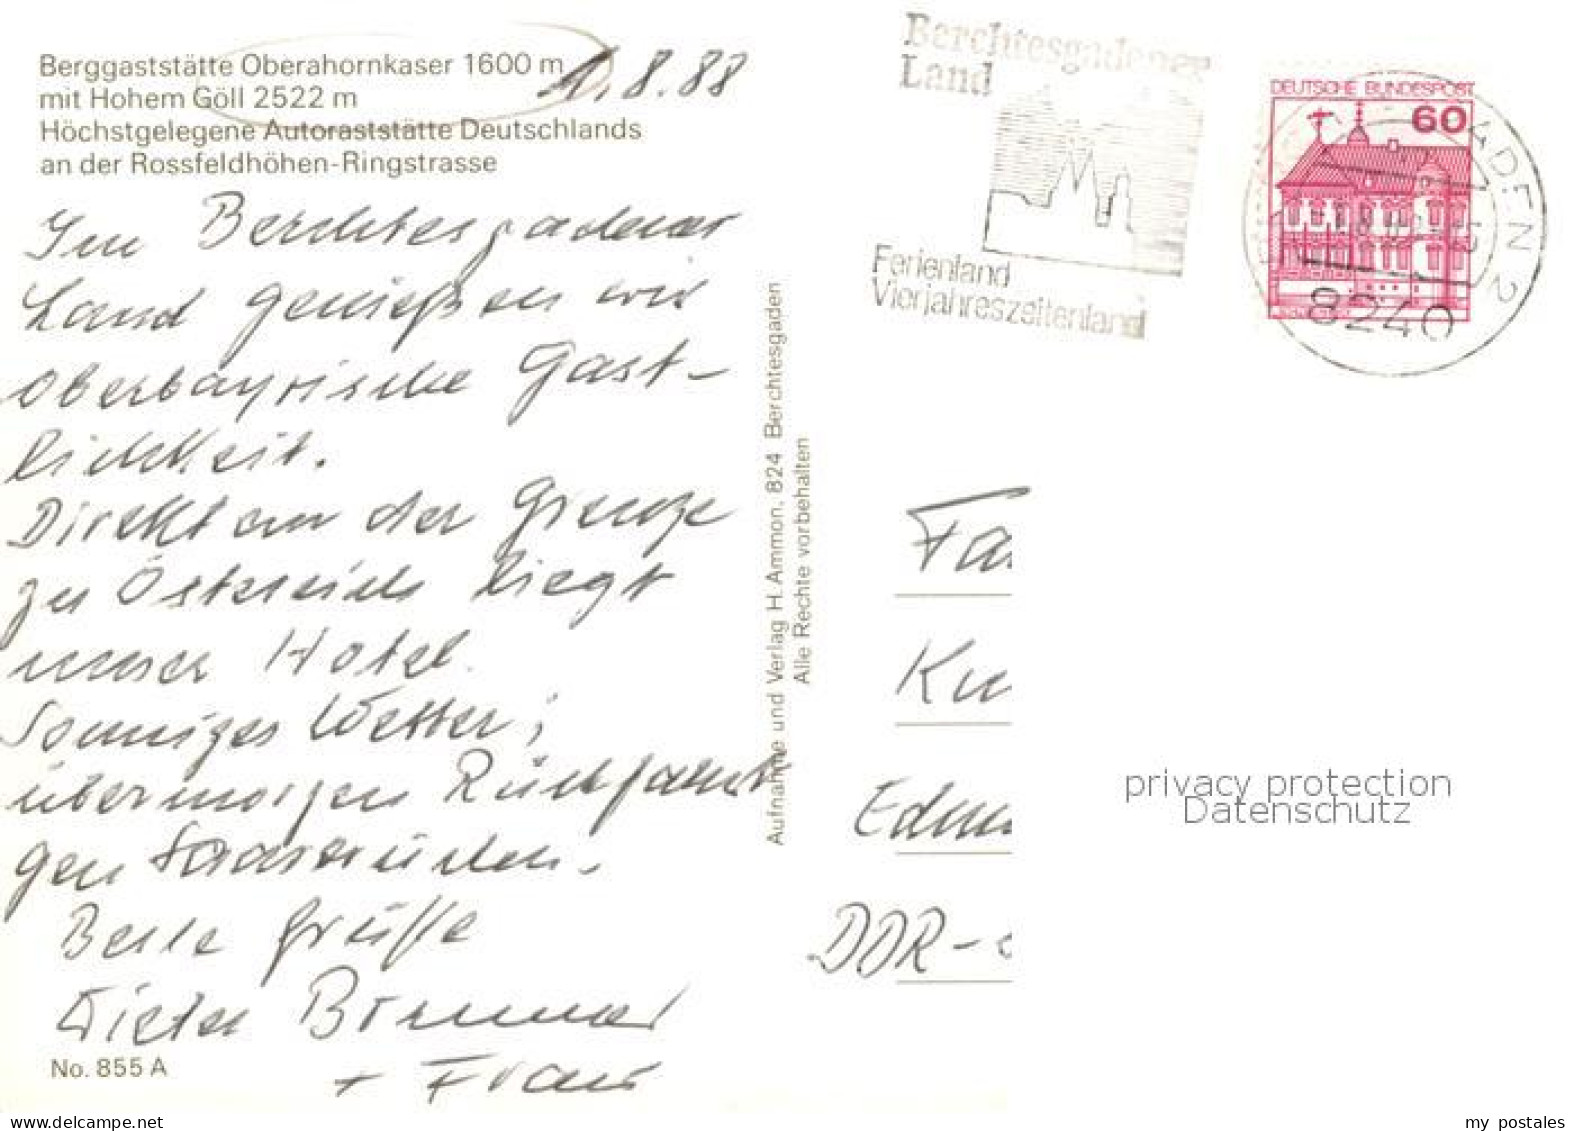 Berggaststätte Oberahornkaser 1600 m
mit Hohem Göll 2522 m
Höchstgelegene Autoraststätte Deutschlands
an der Rossfeldhöhen-Ringstrasse
1.8.88
Im Berchtesgadener
Land genießen wir
oberbayrische Gast-
lichkeit.
Direkt an der Grenze
zu Österreich liegt
unser Hotel.
Sonniges Wetter;
übermorgen Rückfahrt
gen Saarbrücken.
Beste Grüße
Dieter
+ Frau
No. 855 A
Aufnahme und Verlag H. Ammon, 824 Berchtesgaden
Alle Rechte vorbehalten
Berchtesgadener
Land
Ferienland
Vierjahreszeitenland
DEUTSCHE BUNDESPOST
60
ADEN 2
8240
Fa
Ku
DDR-
privacy protection
Datenschutz
www.delcampe.net
my postales